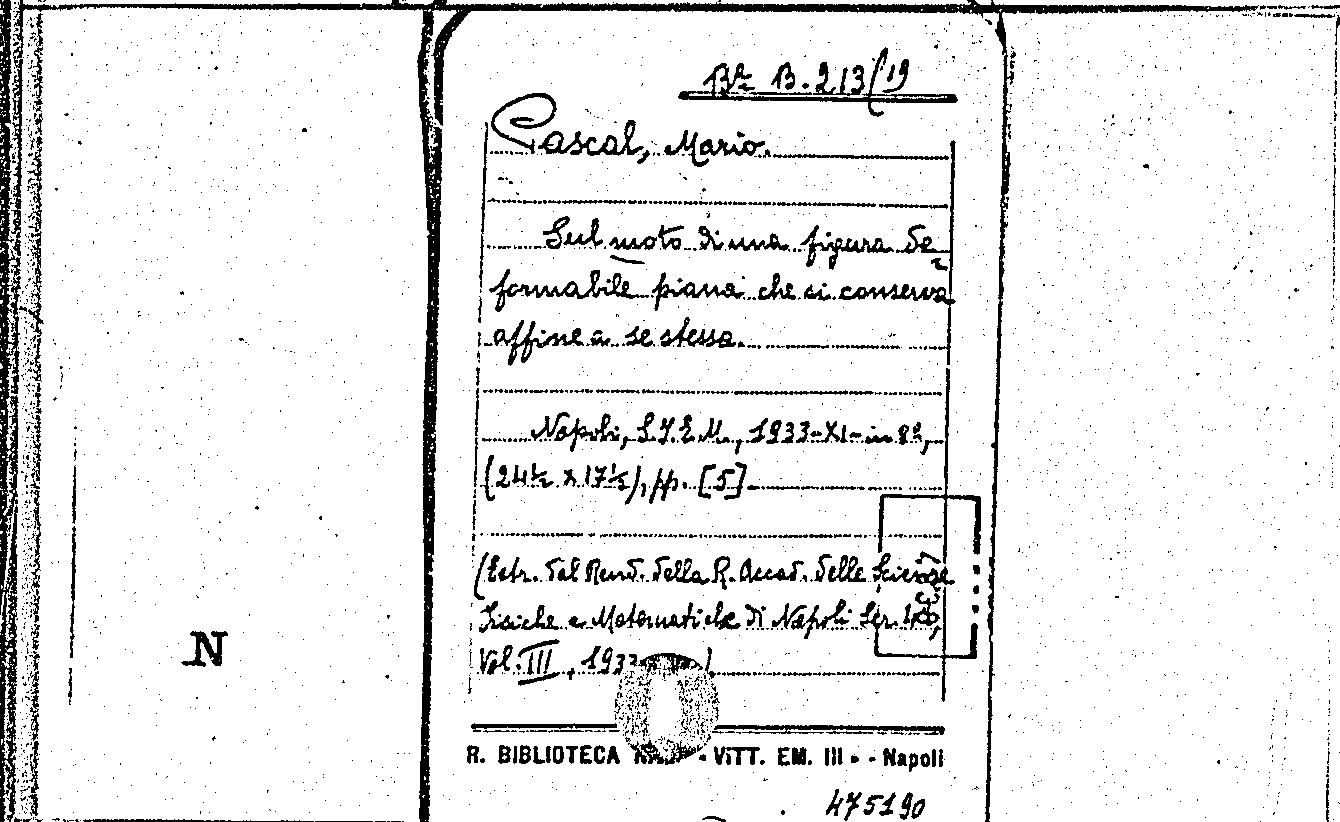 Bª B. 213/19
Pascal, Mario.
Sul moto di una figura de
formabile piana che si conserva
affine a se stessa.
Napoli, S.I.E.M., 1933-XI- in 8º,
(24½ x 17½), pp. [5]
(Estr. dal Rend. della R. Accad. delle Scienze
Fisiche e Matematiche di Napoli Ser.
Vol. III, 193
N
R. BIBLIOTECA - VITT. EM. III - - Napoli
475190